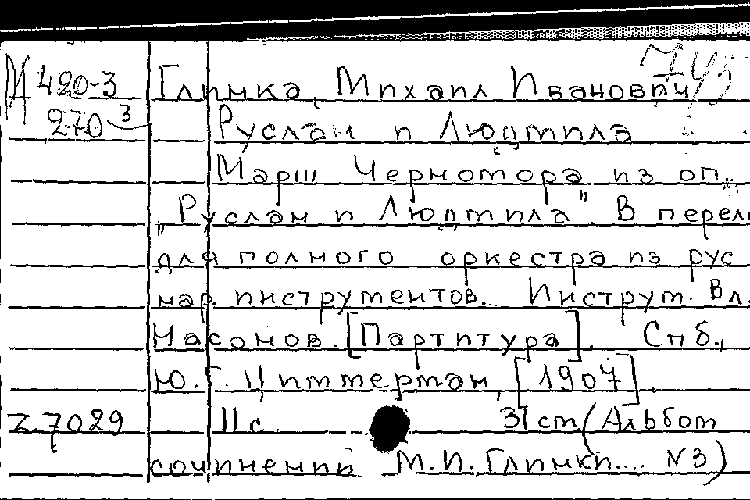 М 420-3 Глинка, Михаил Иванович 745
270 3 Руслан и Людмила
Марш Черномора из оп.
"Руслан и Людмила". В перел.
для полного оркестра из рус
нар. инструментов. Инструм. Вл.
Насонов. [Партитура]. Спб.,
Ю.Г. Циммерман, [1907].
Z.7029 11 с 31 cm (Альбом
сочинений М.И. Глинки.... №3)